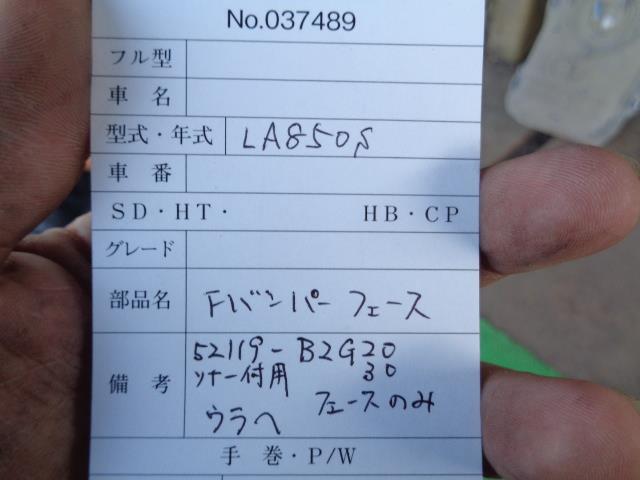 No.037489
フル型
車 名
型式・年式 LA850S
車 番
SD・HT・ HB・CP
グレード
部品名 Fバンパーフェース
備 考 52119-B2G20
ソナー付用 30
フェースのみ
ウラへ
手 巻・P/W